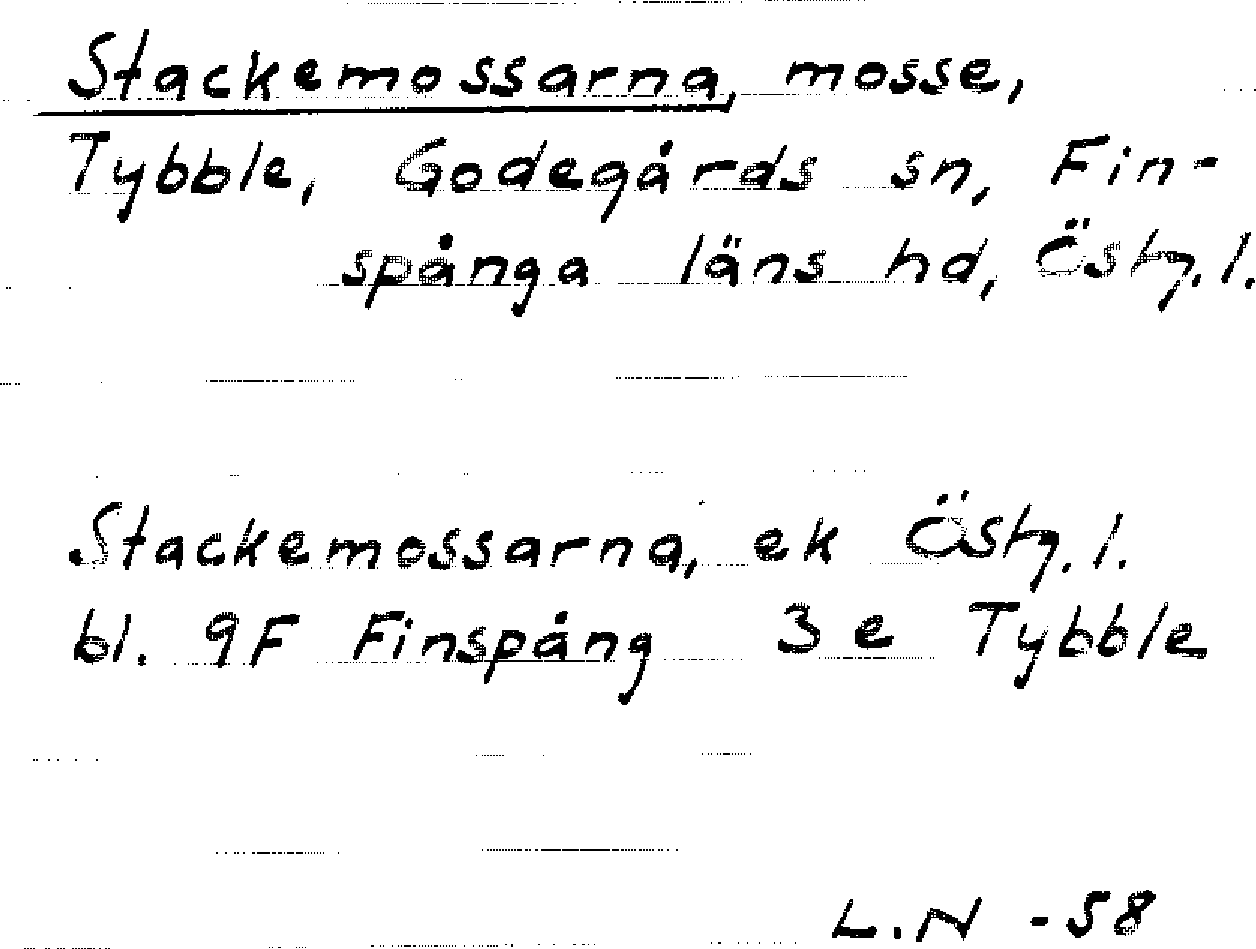 Stackemossarna, mosse,
Tybble, Godegårds sn, Fin-
spånga läns hd, Östg. l.
Stackemossarna, ek Östg. l.
bl. 9F Finspång 3e Tybble
L.N -58